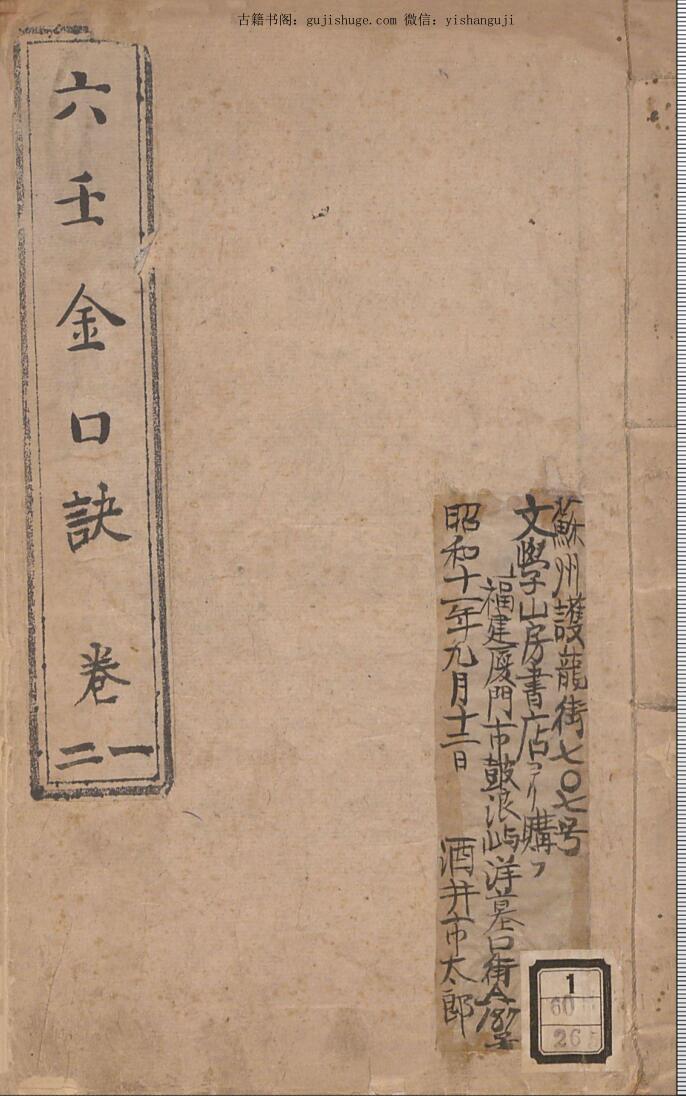 古籍书阁：gujishuge.com 微信：yishanguji
六壬金口訣 卷一二
蘇州護龍街七〇七号
文學山房書店ヨリ購フ
福建廈門市鼓浪嶼洋墓口街A187号
昭和十一年九月十二日 酒井市太郎
1
60
26